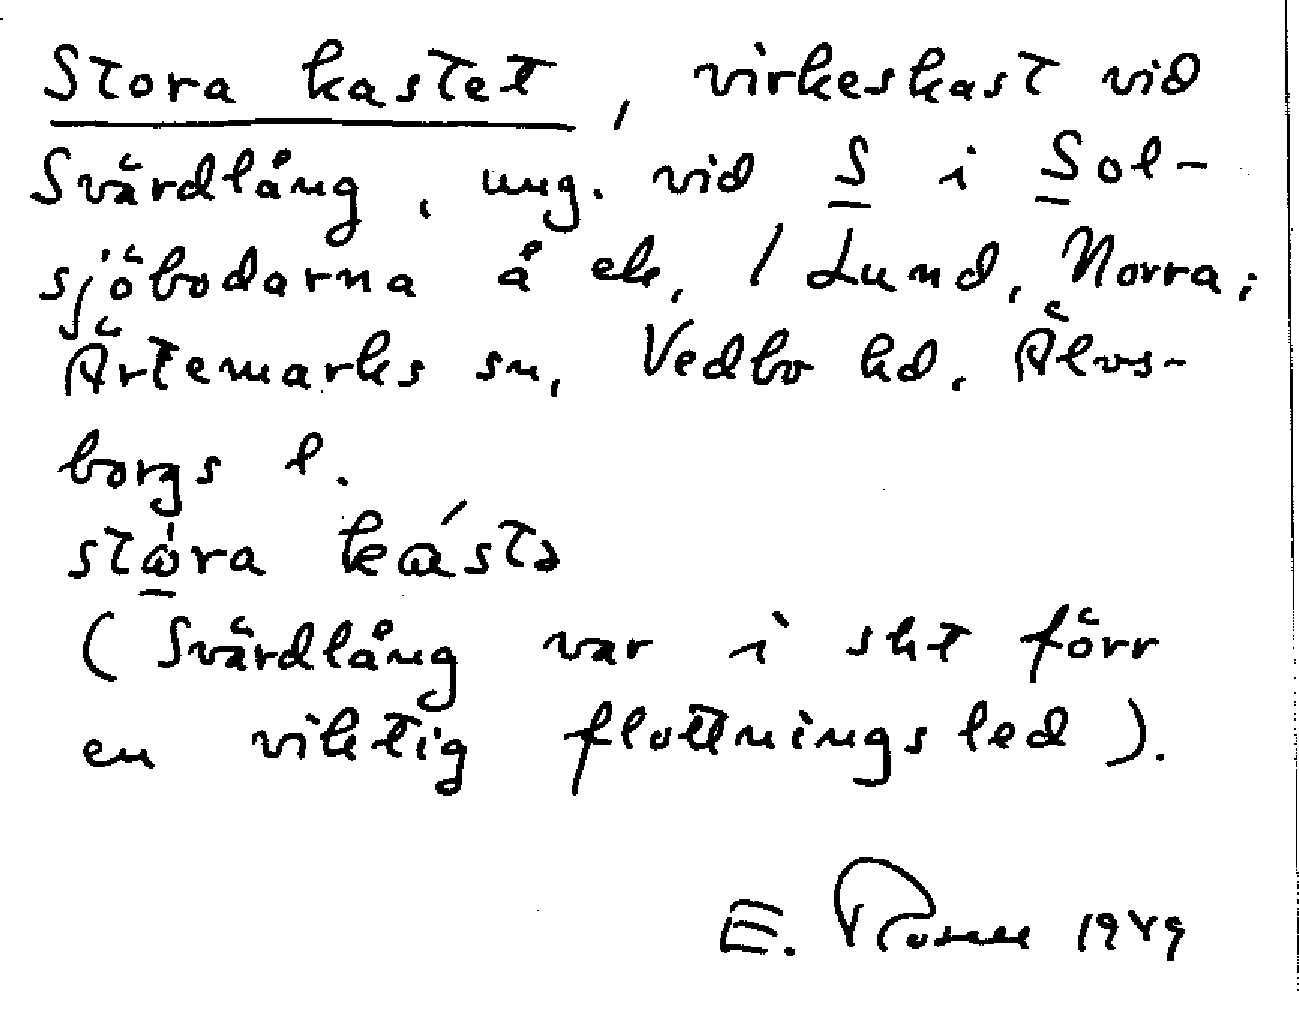 Stora kastet, virkeskast vid
Svärdlång, ung. vid S i Sol-
sjöbodarna å ek, / Lund, Norra;
Ärtemarks sn, Vedbo hd. Älvs-
borgs l.
stὼra kástə
(Svärdlång var i sht förr
en viktig flottningsled).
E. Rosell 1949